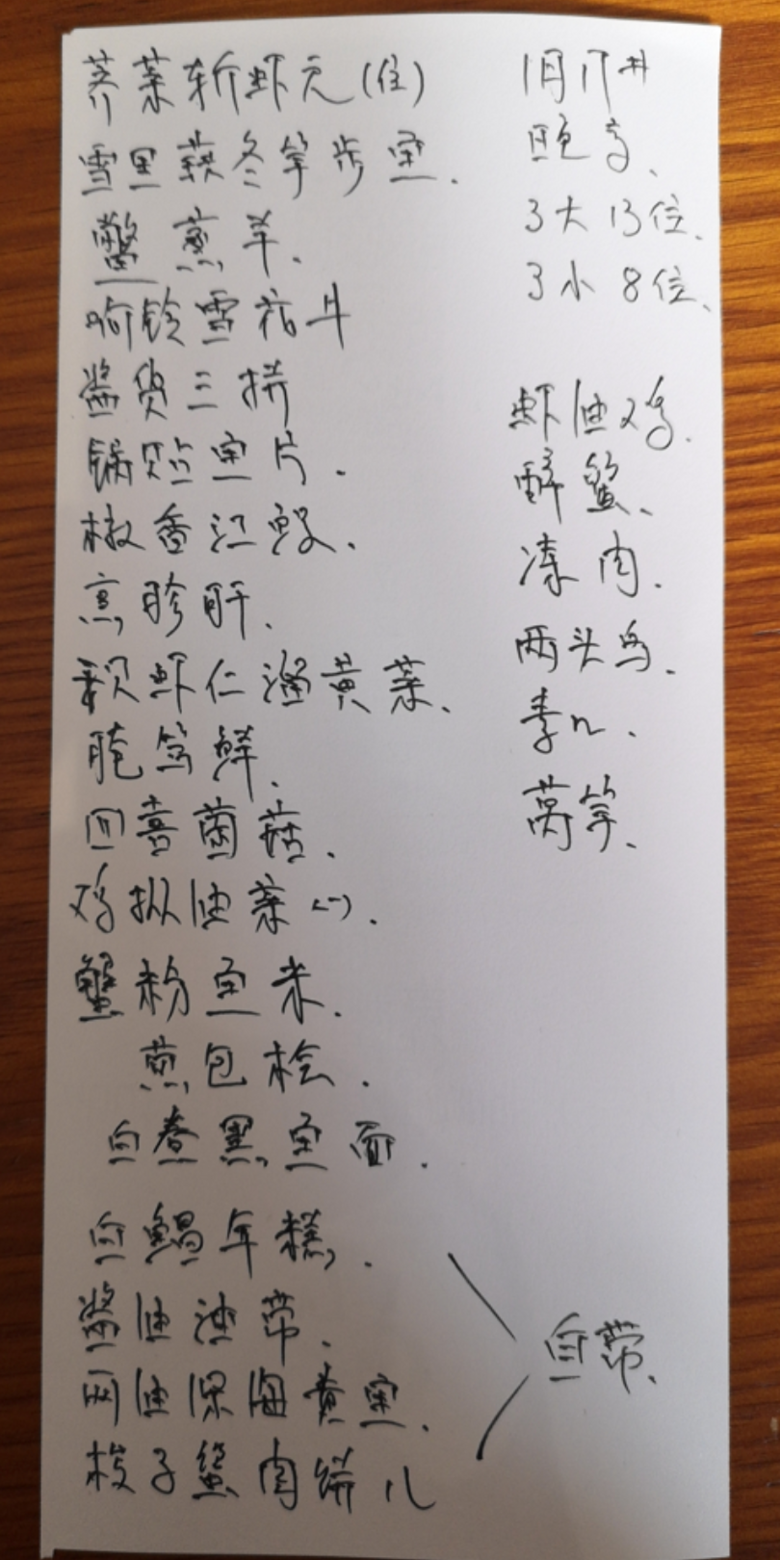 荠菜斩虾元(位)
雪里蕻冬笋步鱼.
鳖蒸羊.
响铃雪花牛
酱货三拼
锅贴鱼片.
椒香江鳗.
熏肝.
颗虾仁溜黄菜.
腌笃鲜.
四喜菌菇.
鸡枞油菜心.
蟹粉鱼米.
煎包桧.
白卷黑鱼面.
白鲳年糕.
酱油油带.
网油深海黄鱼.
梭子蟹肉饼儿
1月17#
3大13位.
3小8位.
虾油鸡.
醉蟹.
冻肉.
两头乌.
莴笋.
自带.